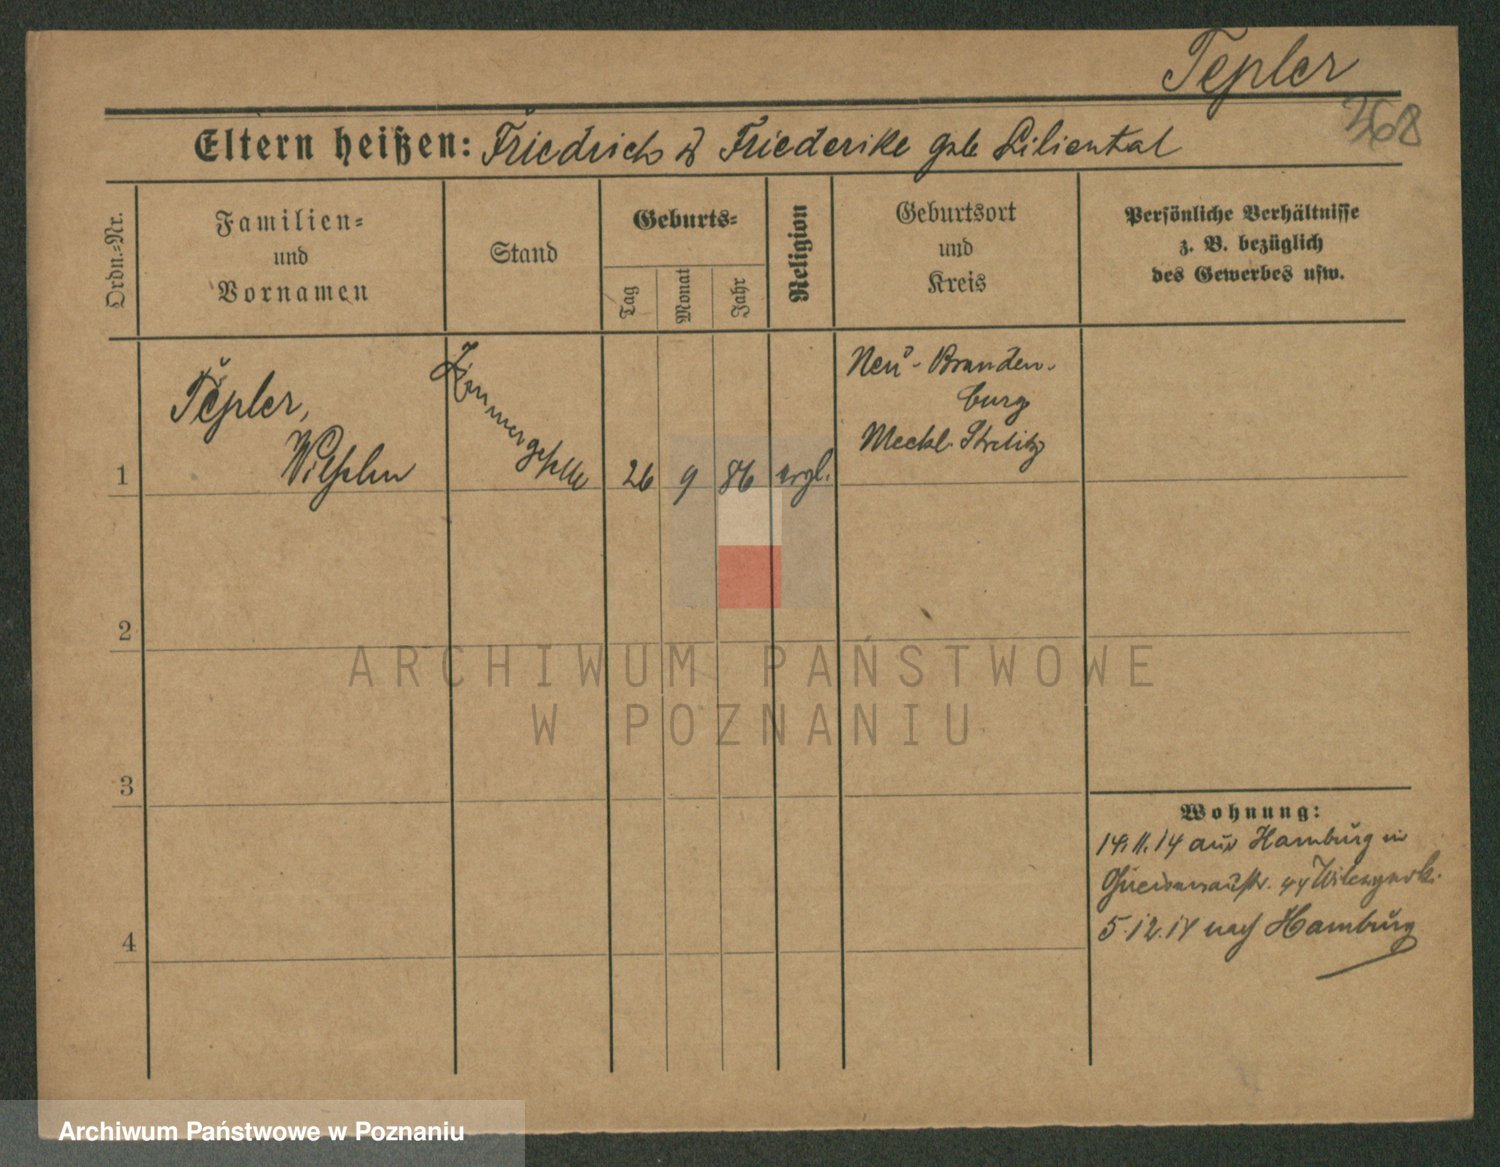 Tepler
368
Eltern heißen: Friedrich & Friederike geb Liliental
Ordn.-Nr.
Familien-
und
Vornamen
Stand
Geburts-
Tag
Monat
Jahr
Religion
Geburtsort
und
Kreis
Persönliche Verhältnisse
z. B. bezüglich
des Gewerbes usw.
1
Tepler,
Wilhelm
Zimmergeselle
26
9
86
evgl.
Neu-Branden-
burg
Meckl. Strelitz
2
3
4
ARCHIWUM PAŃSTWOWE
W POZNANIU
Wohnung:
14.11.14 aus Hamburg in
44
5.12.14 nach Hamburg
Archiwum Państwowe w Poznaniu